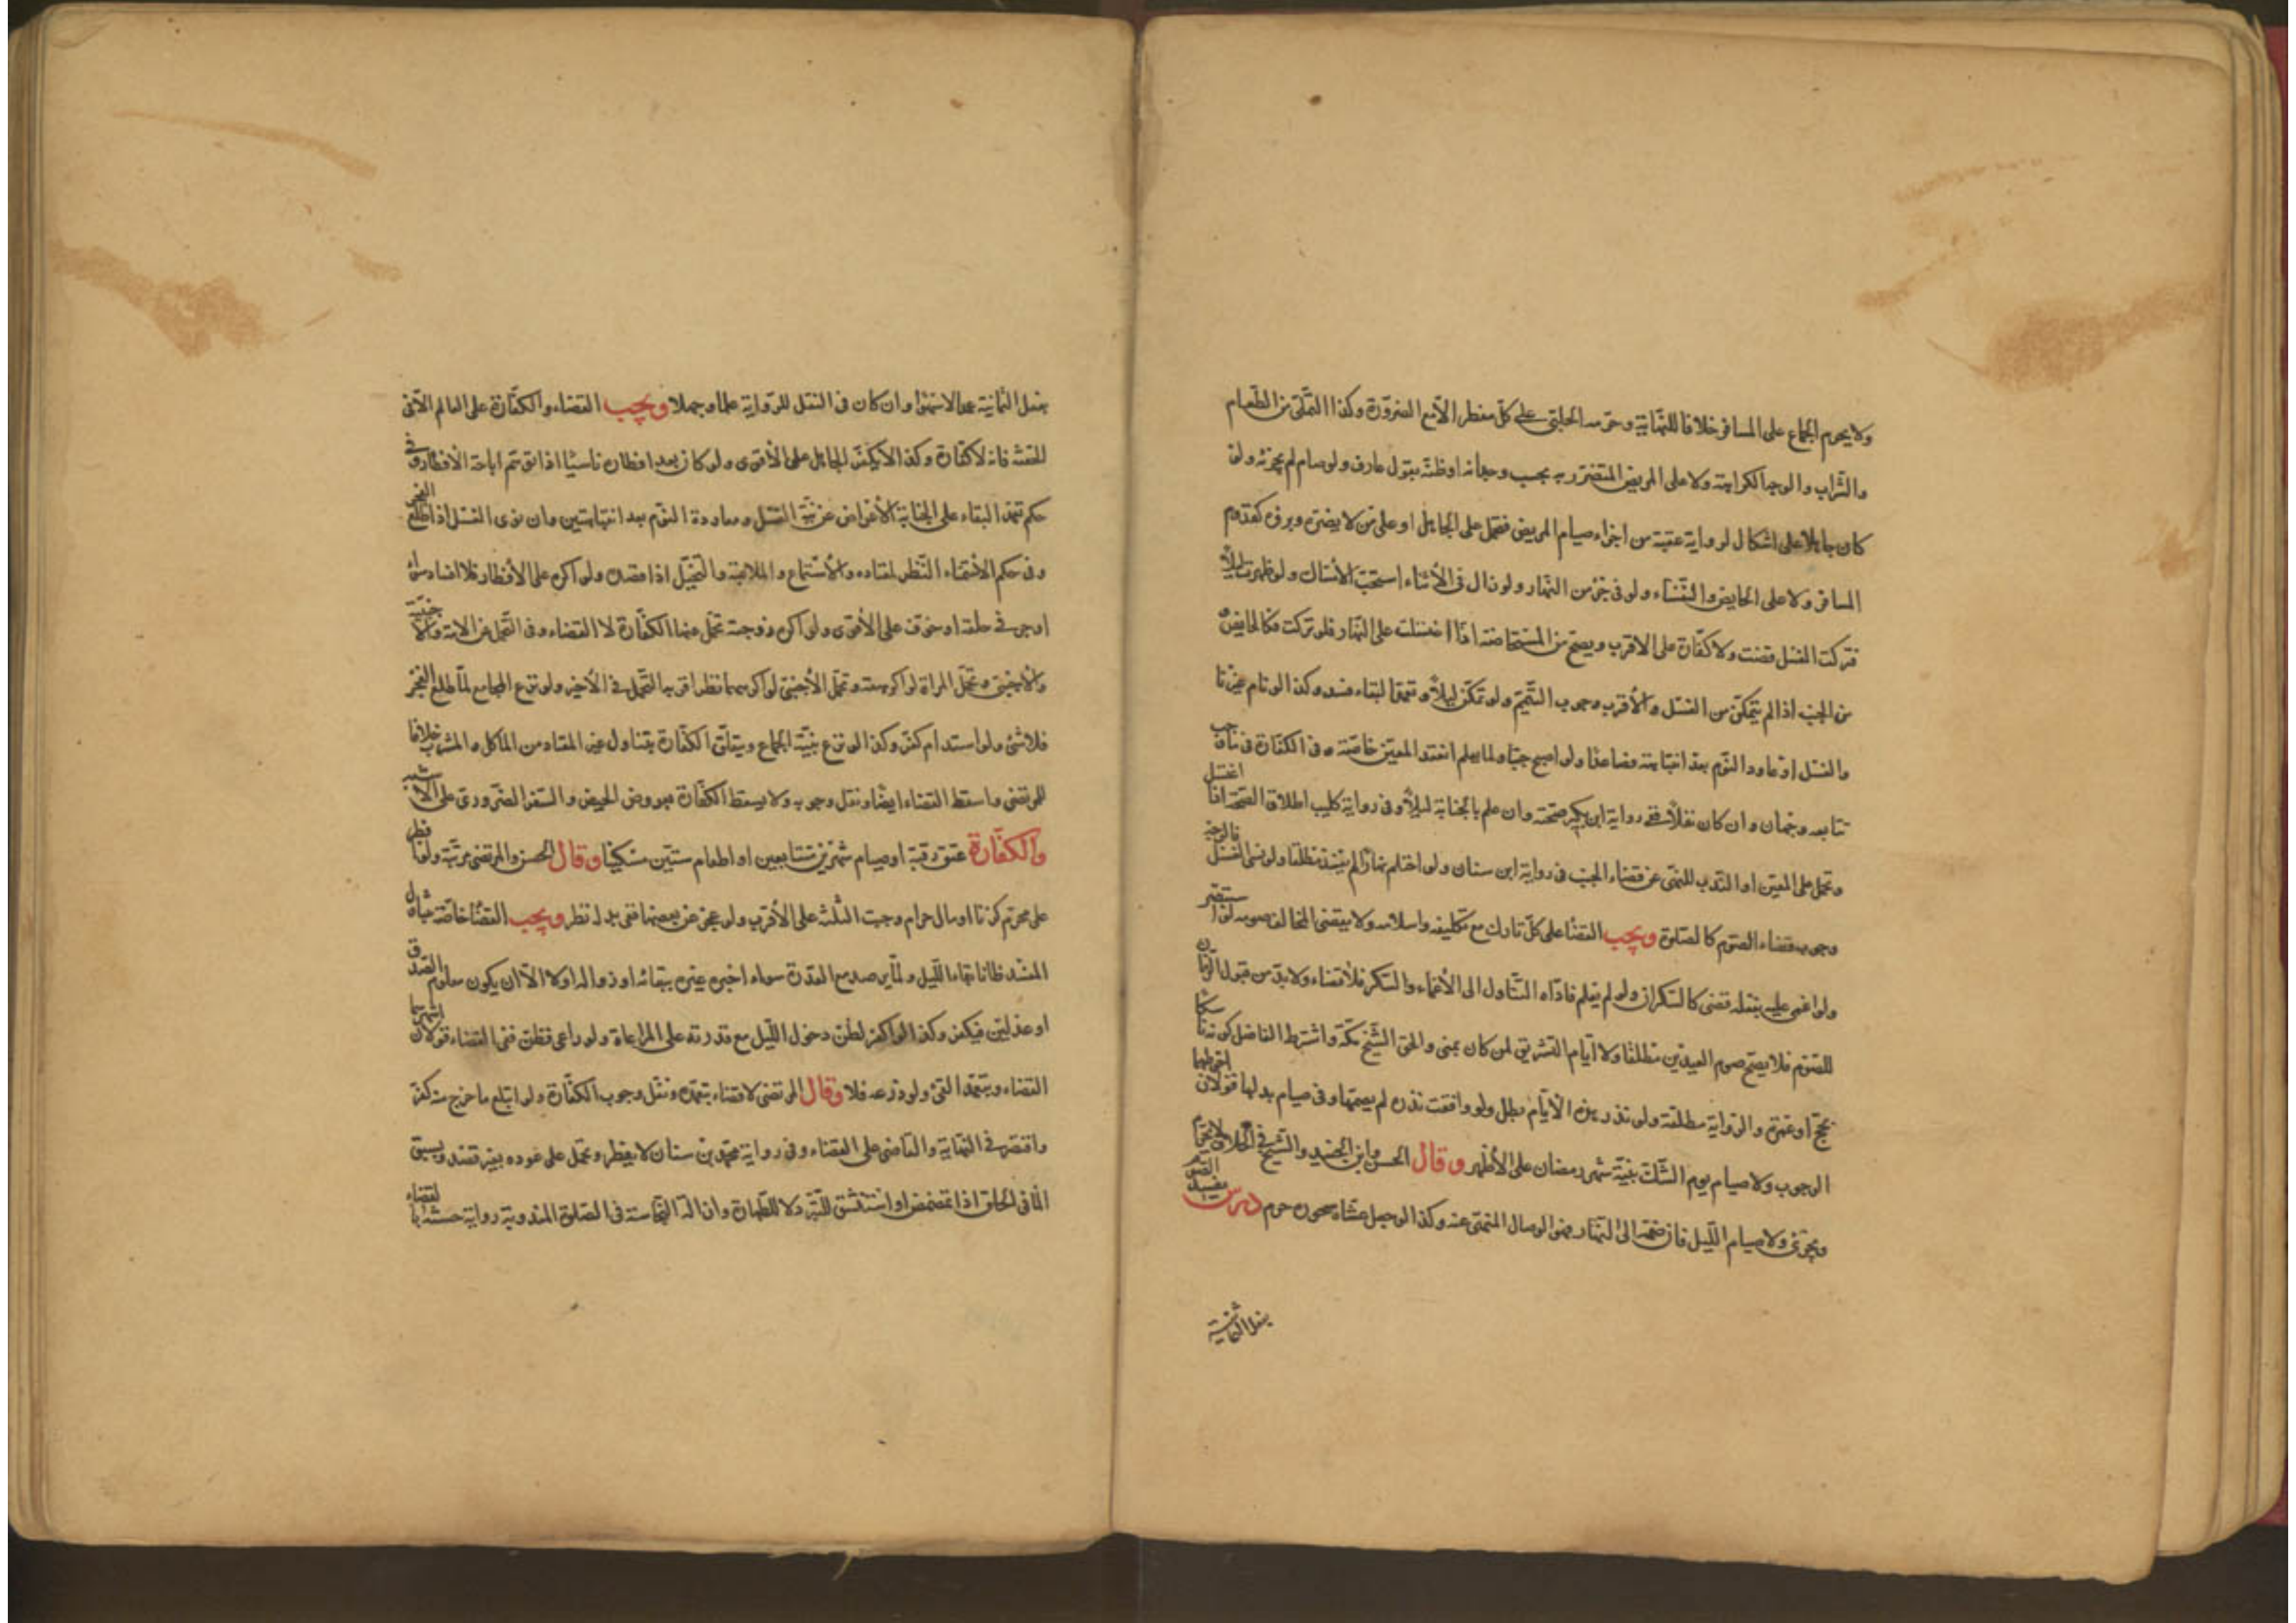 ولا يحرم الجماع على المسافر خلافا للنهاية وحرمه الحلبي على كل مفطر الا مع الضرورة وكذا التملي من الطعام
والشراب والوجه الكراهية ولا على المريض المتضرر به بحسب وجدانه او ظنه بقول عارف ولو صام لم يجزئه ولو
كان جاهلا على اشكال لرواية عقبة من اجزاء صيام المريض فتحمل على الجاهل او على من لا يضره وبرؤه كقدوم
المسافر ولا على الحايض والنفساء ولو في جزء من النهار ولو زال في الأثناء استحب الأمساك ولو طهرت ليلاً
فتركت الغسل قضت ولا كفارة على الاقرب ويصح من المستحاضة اذا اغتسلت على النهار فلو تركت فكالحايض
من الجنب اذا لم يتمكن من الغسل والأقرب وجوب التيمم ولو تمكن ليلاً وتعمد البقاء فسد وكذا لو نام غير ناو
والغسل او عاود النوم بعد انتباهته فصاعدا ولو اصبح جنبا ولما يعلم انعقد المعين خاصة وفي الكفارة في ما وجب
تتابعه وجهان وان كان نفلاً ففي رواية ابن بكير صحته وان علم بالجنابة ليلاً وفي رواية كليب اطلاق الصحة اذا اغتسل
وتحمل على المعين او الندب للنهي عن قضاء الجنب في رواية ابن سنان ولو احتلم نهارا لم يفسد مطلقا ولو نسي الغسل فالوجه
وجوب قضاء الصوم كالصلوة ويجب القضا على كل تارك مع تكليفه واسلامه ولا يقضي المخالف صومه لو استبصر
ولو اغمي عليه بفعله قضى كالسكران ولو لم يعلم فاداه التناول الى الأغماء والسكر فلا قضاء ولا بد من قبول الزمان
للصوم فلا يصح صوم العيدين مطلقا ولا ايام التشريق لمن كان بمنى والحق الشيخ مكة واشترط الفاضل كونه ناسكا
بحج او عمرة والرواية مطلقة ولو نذر هذه الأيام بطل ولو وافقت نذره لم يصمها وفي صيام بدلها قولان احوطهما
الوجوب ولا صيام يوم الشك بنية شهر رمضان على الأظهر وقال الحسن وابن الجنيد والشيخ في الخلاف لا يحرم
ويجزئ ولا صيام الليل فان ضمه الى النهار فهو الوصال المنهي عنه وكذا لو جعل عشاه سحوره حرم درس يفسد الصوم
بفعل الثمانية
بفعل الثمانية عدا الاستمناء وان كان في النقل للرواية علما وجهلا ويجب القضاء والكفارة على العالم الا في
الحقنة فانه لا كفارة وكذا لا يكفر الجاهل على الأقوى ولو كان بعد افطاره ناسيا اذا توهم اباحة الأفطار وفي
حكم تعمد البقاء على الجنابة الأعراض عن نية الغسل ومعاودة النوم بعد انتباهتين وان نوى الغسل اذا طلع الفجر
وفي حكم الاستمناء النظر لمعتاده والأستماع والملاعبة والتخيل اذا قصده ولو اكره على الأفطار فلا افساد سواء
او جر في حلقه او خوف على الأقوى ولو اكره زوجته تحمل عنها الكفارة لا القضاء وفي التحمل عن الامة والأجنبية
والأجنبي وتحمل المراة لو اكرهته وتحمل الأجنبي لو اكرههما نظر اقربه التحمل في الأخير ولو نزع المجامع لما طلع الفجر
فلا شئ ولو استدام كفر وكذا لو نزع بنية الجماع ويتعلق الكفارة بتناول غير المعتاد من المأكل والمشرب خلافا
للمرتضى واسقط القضاء ايضا ونقل وجوبه ولا يسقط الكفارة بعروض الحيض والسفر الضروري على الأشبه
والكفارة عتق رقبة او صيام شهرين متتابعين او اطعام ستين مسكينا وقال الحسن والمرتضى مرتبة ولو افطر
على محرم كزنا او مال حرام وجبت الثلثة على الأقرب ولو عجز عن بعضها ففي بدله نظر ويجب القضا خاصة بتناول
المفسد ظانا بقاء الليل ولما يرصد مع القدرة سواء اخبره غيره ببقائه او زواله اولا الا ان يكون معلوم الصدق
او عدلين فيكفر وكذا لو اكل لظن دخول الليل مع قدرته على المراعاة ولو راعى فظن ففي القضاء قولان اشهرهما
القضاء وبتعمد القئ ولو ذرعه فلا وقال المرتضى لا قضاء بتعمده ونقل وجوب الكفارة ولو ابتلع ما خرج منه كفر
واقتصر في النهاية والقاضي على القضاء وفي رواية محمد بن سنان لا يفطر وتحمل على عوده بغير قصد وبسبق
الما في الحلق اذا تمضمض او استنشق للتبرد لا للطهارة وازالة النجاسة في الصلوة المندوبة رواية حسنة بالقضاء